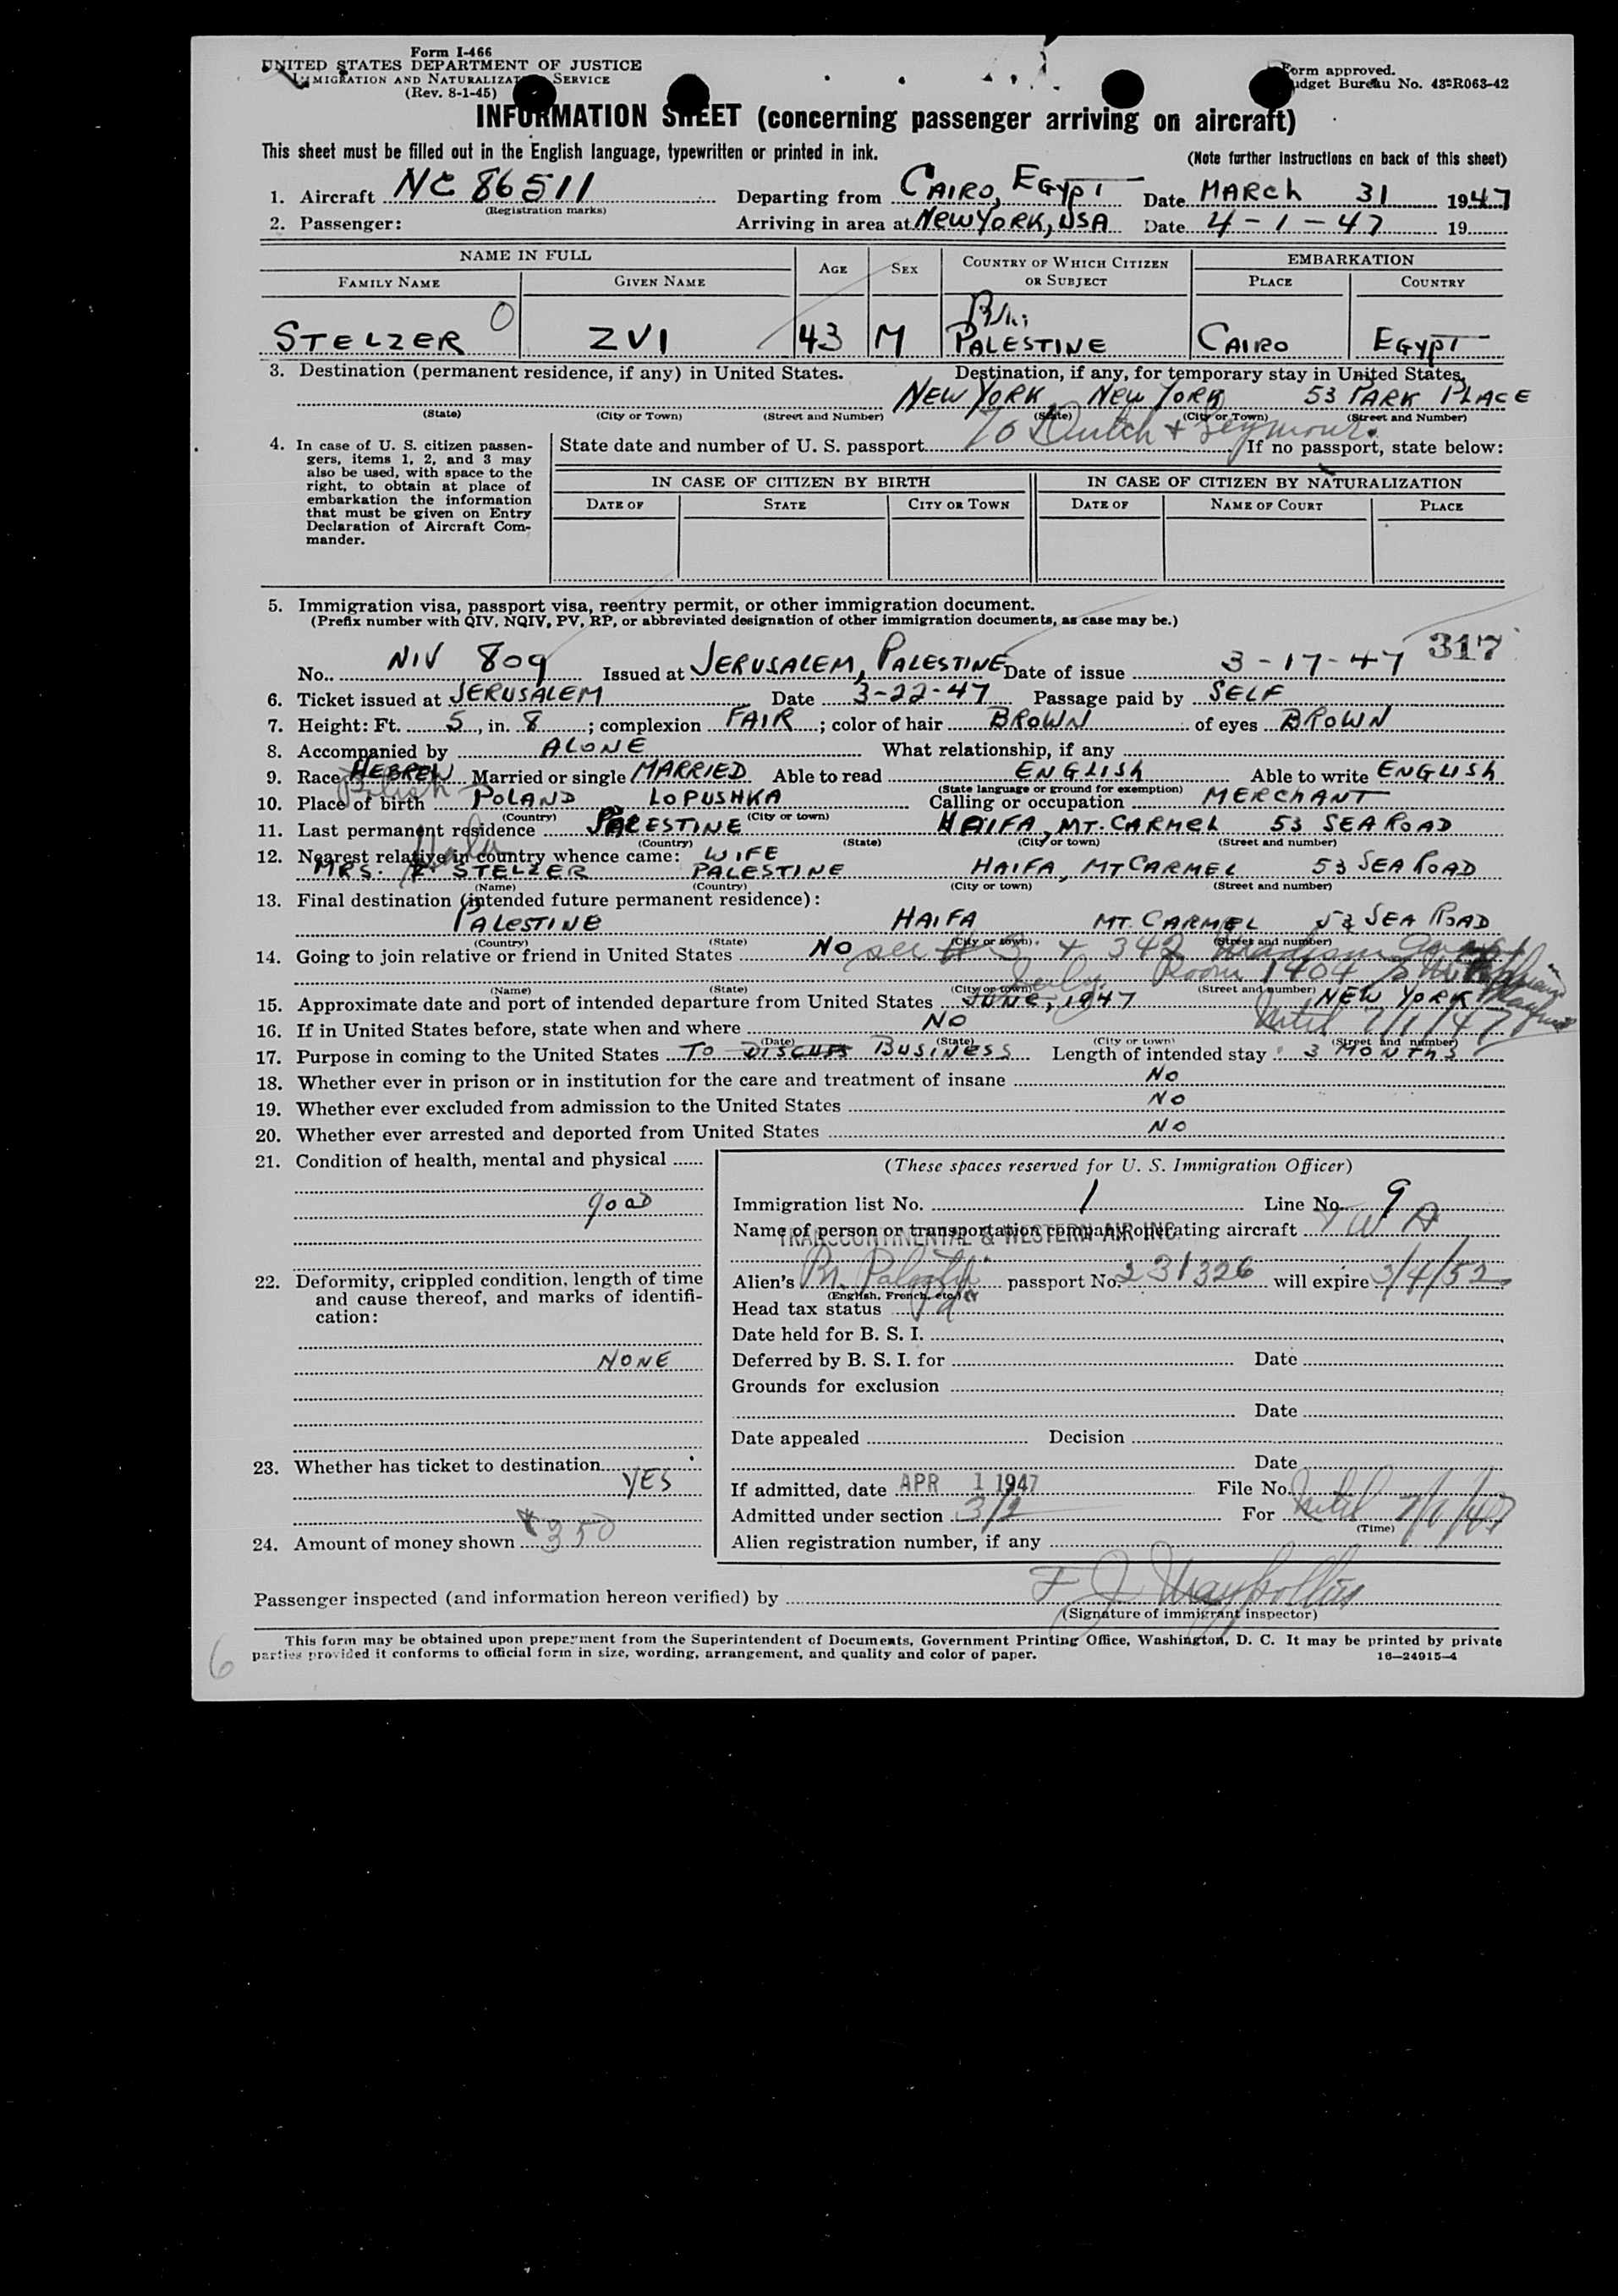 Form I-466
UNITED STATES DEPARTMENT OF JUSTICE
IMMIGRATION AND NATURALIZATION SERVICE
(Rev. 8-1-45)
Form approved.
Budget Bureau No. 43-R063-42
INFORMATION SHEET (concerning passenger arriving on aircraft)
This sheet must be filled out in the English language, typewritten or printed in ink. (Note further instructions on back of this sheet)
1. Aircraft NC 86511 Departing from CAIRO, EGYPT Date MARCH 31 1947
(Registration marks)
2. Passenger: Arriving in area at NEW YORK, USA Date 4-1-47 19
NAME IN FULL AGE SEX COUNTRY OF WHICH CITIZEN OR SUBJECT EMBARKATION
FAMILY NAME GIVEN NAME PLACE COUNTRY
STELZER ZVI 43 M PALESTINE CAIRO EGYPT
3. Destination (permanent residence, if any) in United States. Destination, if any, for temporary stay in United States.
NEW YORK NEW YORK 53 PARK PLACE
(State) (City or Town) (Street and Number) (State) (City or Town) (Street and Number)
4. In case of U. S. citizen passengers, items 1, 2, and 3 may also be used, with space to the right, to obtain at place of embarkation the information that must be given on Entry Declaration of Aircraft Commander.
State date and number of U. S. passport If no passport, state below:
IN CASE OF CITIZEN BY BIRTH IN CASE OF CITIZEN BY NATURALIZATION
DATE OF STATE CITY OR TOWN DATE OF NAME OF COURT PLACE
5. Immigration visa, passport visa, reentry permit, or other immigration document.
(Prefix number with QIV, NQIV, PV, RP, or abbreviated designation of other immigration documents, as case may be.)
317
No. NIV 809 Issued at JERUSALEM, PALESTINE Date of issue 3-17-47
6. Ticket issued at JERUSALEM Date 3-22-47 Passage paid by SELF
7. Height: Ft. 5, in. 8; complexion FAIR; color of hair BROWN of eyes BROWN
8. Accompanied by ALONE What relationship, if any
9. Race HEBREW Married or single MARRIED Able to read ENGLISH Able to write ENGLISH
Polish (State language or ground for exemption)
10. Place of birth POLAND LOPUSHKA Calling or occupation MERCHANT
(Country) (City or town)
11. Last permanent residence PALESTINE HAIFA, MT. CARMEL 53 SEA ROAD
(Country) (State) (City or town) (Street and number)
12. Nearest relative in country whence came: WIFE
MRS. Z. STELZER PALESTINE HAIFA, MT CARMEL 53 SEA ROAD
(Name) (Country) (City or town) (Street and number)
13. Final destination (intended future permanent residence):
PALESTINE HAIFA MT. CARMEL 53 SEA ROAD
(Country) (State) (City or town) (Street and number)
14. Going to join relative or friend in United States NO see # 3 + 342 Madison
Room 1404
(Name) (State) (City or town) (Street and number)
15. Approximate date and port of intended departure from United States JUNE, 1947 NEW YORK
July
16. If in United States before, state when and where NO Until 7/1/47
(Date) (State) (City or town) (Street and number)
17. Purpose in coming to the United States TO DISCUSS BUSINESS Length of intended stay 3 MONTHS
18. Whether ever in prison or in institution for the care and treatment of insane NO
19. Whether ever excluded from admission to the United States NO
20. Whether ever arrested and deported from United States NO
21. Condition of health, mental and physical
good
22. Deformity, crippled condition, length of time and cause thereof, and marks of identification:
NONE
23. Whether has ticket to destination
YES
24. Amount of money shown $350
(These spaces reserved for U. S. Immigration Officer)
Immigration list No. 1 Line No. 9
Name of person or transportation company operating aircraft TWA
TRANSCONTINENTAL & WESTERN AIR INC.
Alien's passport No. 231326 will expire 3/4/52
(English, French, etc.)
Head tax status
Date held for B. S. I.
Deferred by B. S. I. for Date
Grounds for exclusion
Date
Date appealed Decision
Date
If admitted, date APR 1 1947 File No.
Admitted under section 3/2 For Until 7/1/47
(Time)
Alien registration number, if any
Passenger inspected (and information hereon verified) by
(Signature of immigrant inspector)
This form may be obtained upon prepayment from the Superintendent of Documents, Government Printing Office, Washington, D. C. It may be printed by private
parties provided it conforms to official form in size, wording, arrangement, and quality and color of paper. 16—24915-4
6